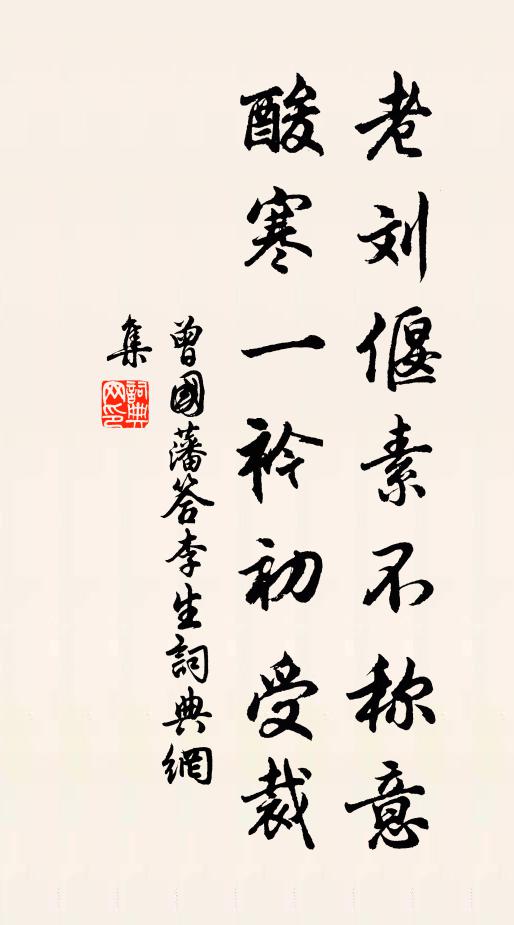 老刘偃素不称意
酸寒一衿初受裁
曾國藩答李生詞典網
集
詞典网印